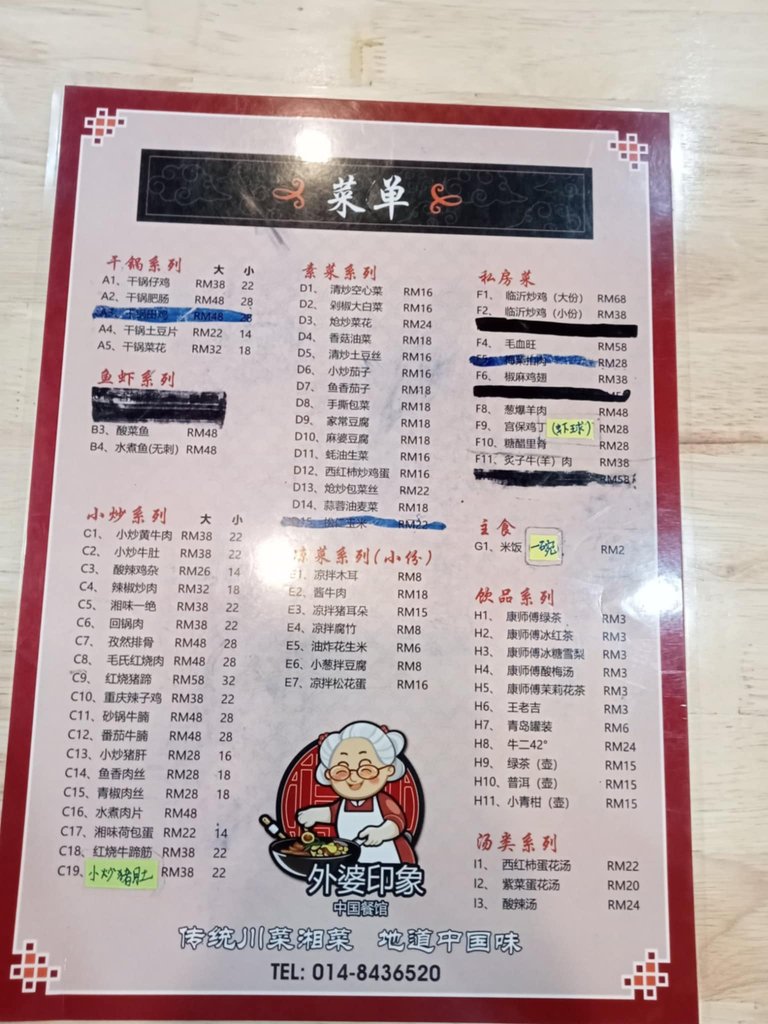 菜单
干锅系列 大 小
A1、干锅仔鸡 RM38 22
A2、干锅肥肠 RM48 28
A3、干锅田鸡 RM48 28
A4、干锅土豆片 RM22 14
A5、干锅菜花 RM32 18
鱼虾系列
B3、酸菜鱼 RM48
B4、水煮鱼(无刺) RM48
小炒系列 大 小
C1、小炒黄牛肉 RM38 22
C2、小炒牛肚 RM38 22
C3、酸辣鸡杂 RM26 14
C4、辣椒炒肉 RM32 18
C5、湘味一绝 RM38 22
C6、回锅肉 RM38 22
C7、孜然排骨 RM48 28
C8、毛氏红烧肉 RM48 28
C9、红烧猪蹄 RM58 32
C10、重庆辣子鸡 RM38 22
C11、砂锅牛腩 RM48 28
C12、番茄牛腩 RM48 28
C13、小炒猪肝 RM28 16
C14、鱼香肉丝 RM28 18
C15、青椒肉丝 RM28 18
C16、水煮肉片 RM48
C17、湘味荷包蛋 RM22 14
C18、红烧牛蹄筋 RM38 22
C19、小炒猪肚 RM38 22
素菜系列
D1、清炒空心菜 RM16
D2、剁椒大白菜 RM16
D3、炝炒菜花 RM24
D4、香菇油菜 RM18
D5、清炒土豆丝 RM16
D6、小炒茄子 RM16
D7、鱼香茄子 RM18
D8、手撕包菜 RM18
D9、家常豆腐 RM18
D10、麻婆豆腐 RM18
D11、蚝油生菜 RM16
D12、西红柿炒鸡蛋 RM16
D13、炝炒包菜丝 RM22
D14、蒜蓉油麦菜 RM18
D15、松仁玉米 RM22
凉菜系列(小份)
E1、凉拌木耳 RM8
E2、酱牛肉 RM18
E3、凉拌猪耳朵 RM15
E4、凉拌腐竹 RM8
E5、油炸花生米 RM6
E6、小葱拌豆腐 RM8
E7、凉拌松花蛋 RM16
私房菜
F1、临沂炒鸡（大份） RM68
F2、临沂炒鸡（小份） RM38
F4、毛血旺 RM58
F5、 RM28
F6、椒麻鸡翅 RM38
F8、葱爆羊肉 RM48
F9、宫保鸡丁(虾球) RM28
F10、糖醋里脊 RM28
F11、炙子牛(羊）肉 RM38
RM58
主食
G1、米饭 一碗 RM2
饮品系列
H1、康师傅绿茶 RM3
H2、康师傅冰红茶 RM3
H3、康师傅冰糖雪梨 RM3
H4、康师傅酸梅汤 RM3
H5、康师傅茉莉花茶 RM3
H6、王老吉 RM3
H7、青岛罐装 RM6
H8、牛二42° RM24
H9、绿茶（壶） RM15
H10、普洱（壶） RM15
H11、小青柑（壶） RM15
汤类系列
I1、西红柿蛋花汤 RM22
I2、紫菜蛋花汤 RM20
I3、酸辣汤 RM24
外婆印象
中国餐馆
传统川菜湘菜 地道中国味
TEL: 014-8436520